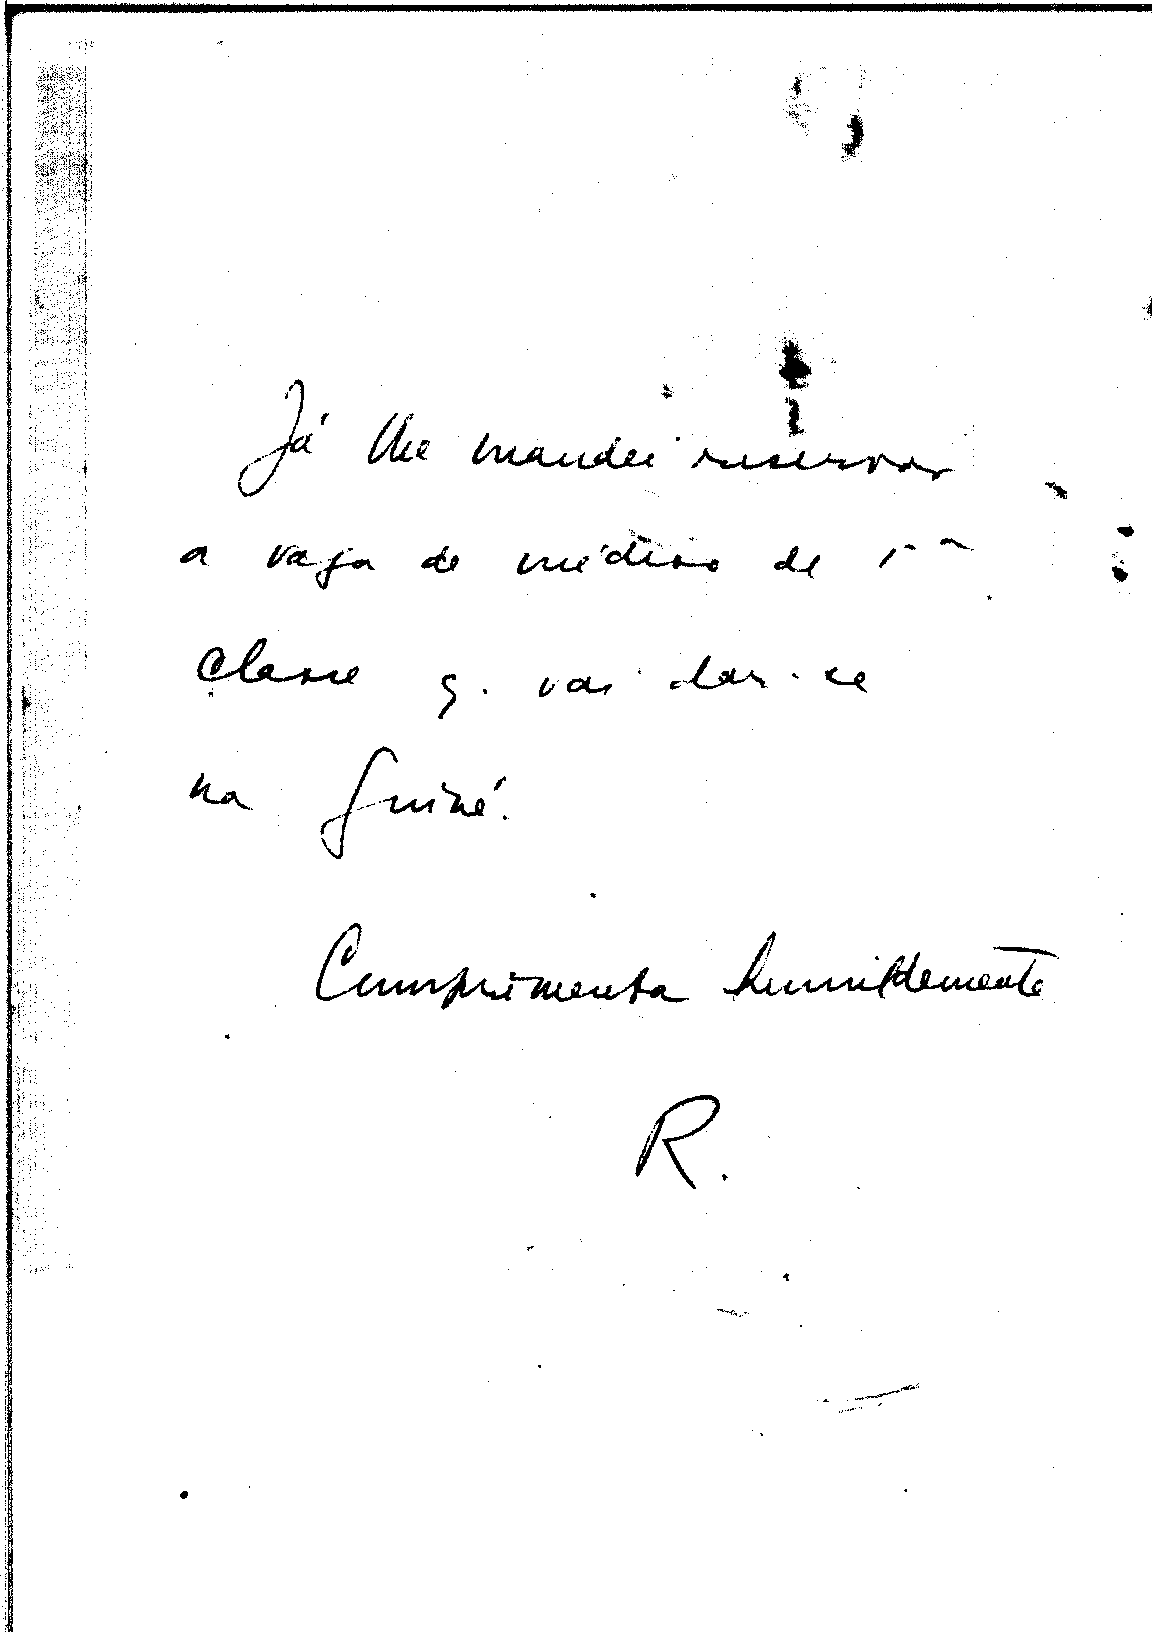 Já lhe mandei reservar
a vaga de médico de 1ª
classe q. vai dar-se
na Guiné.
Cumprimenta humildemente
R.